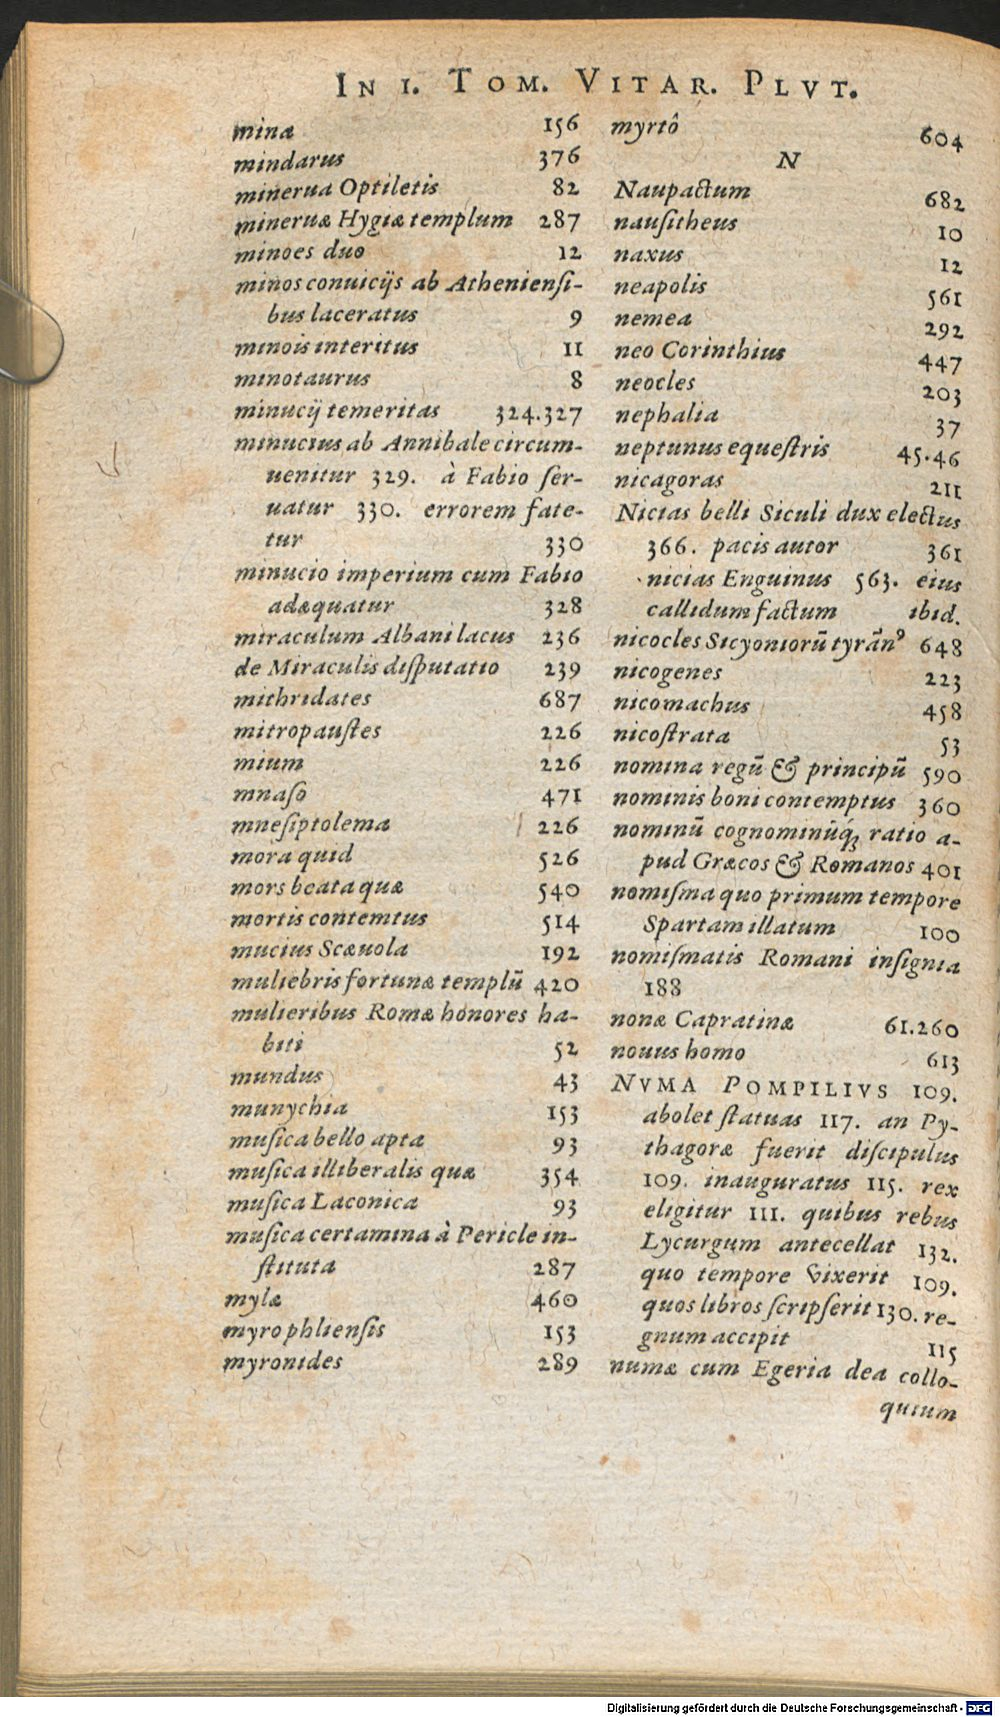 IN I. TOM. VITAR. PLVT.
minæ 156
mindarus 376
minerua Optiletis 82
mineruæ Hygiæ templum 287
minoes duo 12
minos conuicijs ab Atheniensi-
bus laceratus 9
minois interitus 11
minotaurus 8
minucij temeritas 324.327
minucius ab Annibale circum-
uenitur 329. à Fabio ser-
uatur 330. errorem fate-
tur 330
minucio imperium cum Fabio
adæquatur 328
miraculum Albani lacus 236
de Miraculis disputatio 239
mithridates 687
mitropaustes 226
mium 226
mnaso 471
mnesiptolema 226
mora quid 526
mors beata quæ 540
mortis contemtus 514
mucius Scæuola 192
muliebris fortunæ templū 420
mulieribus Romæ honores ha-
biti 52
mundus 43
munychia 153
musica bello apta 93
musica illiberalis quæ 354
musica Laconica 93
musica certamina à Pericle in-
stituta 287
mylæ 460
myrophliensis 153
myronides 289
myrtô 604
N
Naupactum 682
nausitheus 10
naxus 12
neapolis 561
nemea 292
neo Corinthius 447
neocles 203
nephalia 37
neptunus equestris 45.46
nicagoras 211
Nicias belli Siculi dux electus
366. pacis autor 361
nicias Enguinus 563. eius
callidum factum ibid.
nicocles Sicyoniorū tyrānꝰ 648
nicogenes 223
nicomachus 458
nicostrata 53
nomina regū & principū 590
nominis boni contemptus 360
nominū cognominūq́ꝫ ratio a-
pud Græcos & Romanos 401
nomisma quo primum tempore
Spartam illatum 100
nomismatis Romani insignia
188
nonæ Capratinæ 61.260
nouus homo 613
NVMA POMPILIVS 109.
abolet statuas 117. an Py-
thagoræ fuerit discipulus
109. inauguratus 115. rex
eligitur 111. quibus rebus
Lycurgum antecellat 132.
quo tempore vixerit 109.
quos libros scripserit 130. re-
gnum accipit 115
numæ cum Egeria dea collo-
quium
Digitalisierung gefördert durch die Deutsche Forschungsgemeinschaft - DFG